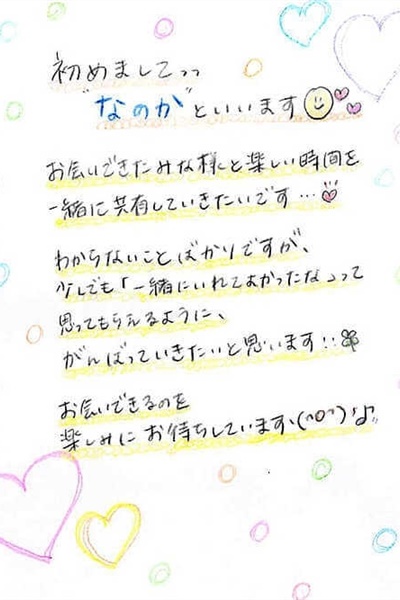 初めましてっっ
"なのか"といいます
お会いできたみな様と楽しい時間を
一緒に共有していきたいです…
わからないことばかりですが、
少しでも「一緒にいれてよかったな」って
思ってもらえるように、
がんばっていきたいと思います!!
お会いできるのを
楽しみにお待ちしています、(^o^)♪